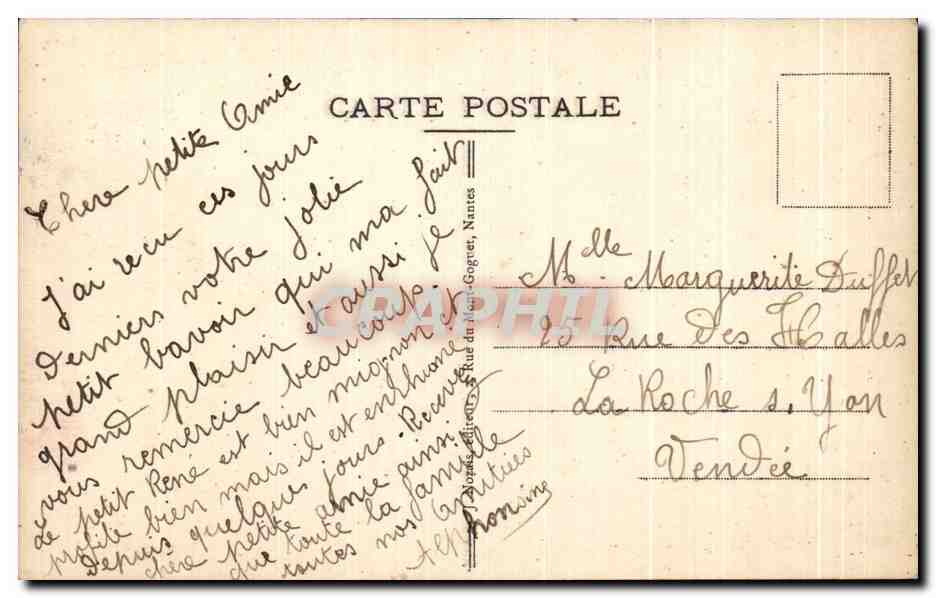 CARTE POSTALE
Chere petite Amie
J'ai recu ces jours
Derniers votre jolie
petit bavoir qui ma fait
grand plaisir et aussi je
vous remercie beaucoup.
Le petit René est bien mignon et
profite bien mais il est enrhumé
Depuis quelques jours. Recevez
chère petite amie ainsi
que toute la famille
toutes nos Amitiés
Alphonsine
J Nozais, éditeur, Rue du Mont-Goguet, Nantes
Mlle Marguerite Duffet
25 Rue Des Halles
La Roche s. Yon
Vendée
CPAPHIL